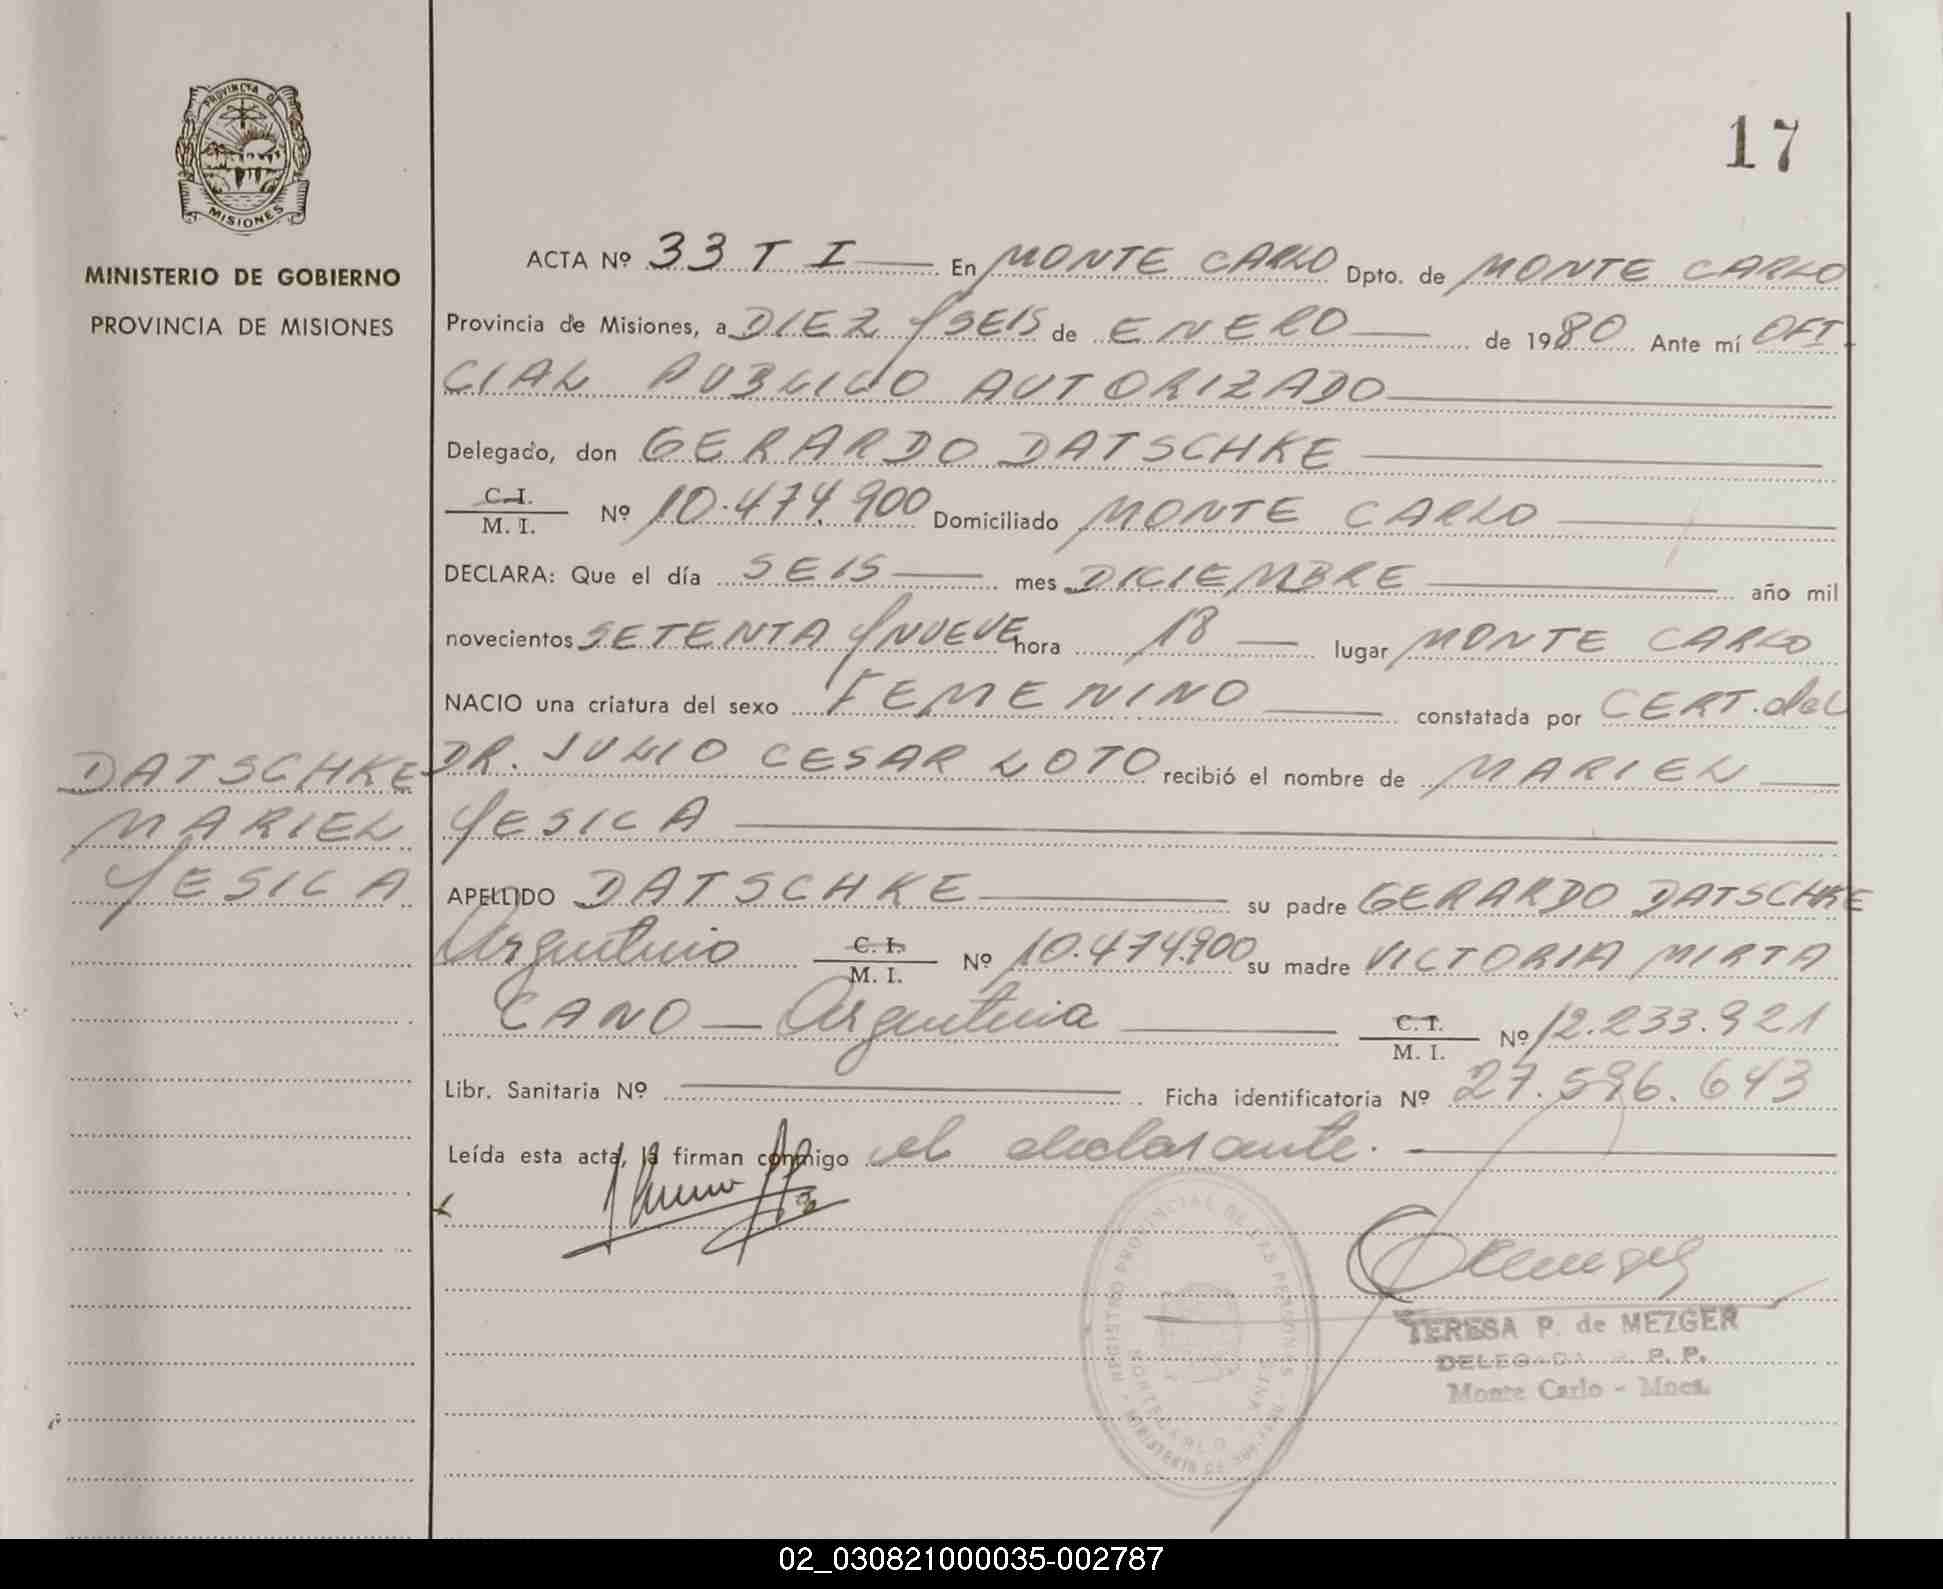 17
PROVINCIA DE
MISIONES
MINISTERIO DE GOBIERNO
PROVINCIA DE MISIONES
ACTA Nº 33 T I En MONTE CARLO Dpto. de MONTE CARLO
Provincia de Misiones, a DIEZ Y SEIS de ENERO de 1980 Ante mí OFI
CIAL PUBLICO AUTORIZADO
Delegado, don GERARDO DATSCHKE
C. I.
M. I. Nº 10.474.900 Domiciliado MONTE CARLO
DECLARA: Que el día SEIS mes DICIEMBRE año mil
novecientos SETENTA Y NUEVE hora 18 lugar MONTE CARLO
NACIO una criatura del sexo FEMENINO constatada por CERT. del
DR. JULIO CESAR LOTO recibió el nombre de MARIEL
YESICA
DATSCHKE
MARIEL
YESICA
APELLIDO DATSCHKE su padre GERARDO DATSCHKE
Argentino C. I. M. I. Nº 10.474.900 su madre VICTORIA MIRTA
CANO — Argentina C. I. M. I. Nº 12.233.921
Libr. Sanitaria Nº Ficha identificatoria Nº 27.596.643
Leída esta acta, la firman conmigo el declarante.
REGISTRO PROVINCIAL DE LAS PERSONAS
TERESA P. de MEZGER
DELEGADA R. P. P.
Monte Carlo - Mnes.
02_030821000035-002787